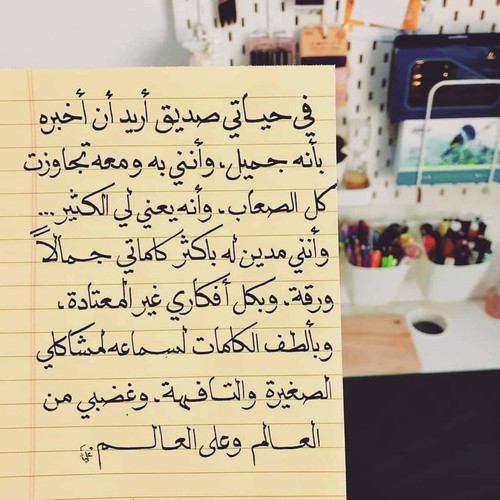 في حياتي صديق أريد أن أخبره
بأنه جميل، وأنني به ومعه تجاوزت
كل الصعاب، وأنه يعني لي الكثير...
وأنني مدين له بأكثر كلماتي جمالاً
ورقة. وبكل أفكاري غير المعتادة،
وبألطف الكلمات لسماعه لمشاكلي
الصغيرة والتافهة. وغضبي من
العالم وعلى العالم.